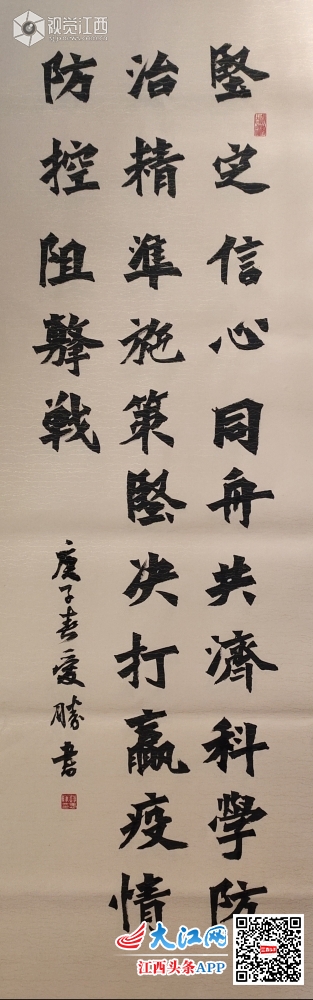 视觉江西
堅定信心同舟共濟科學防
治精準施策堅决打贏疫情
防控阻擊戰
庚子春愛勝書
大江网
江西头条APP